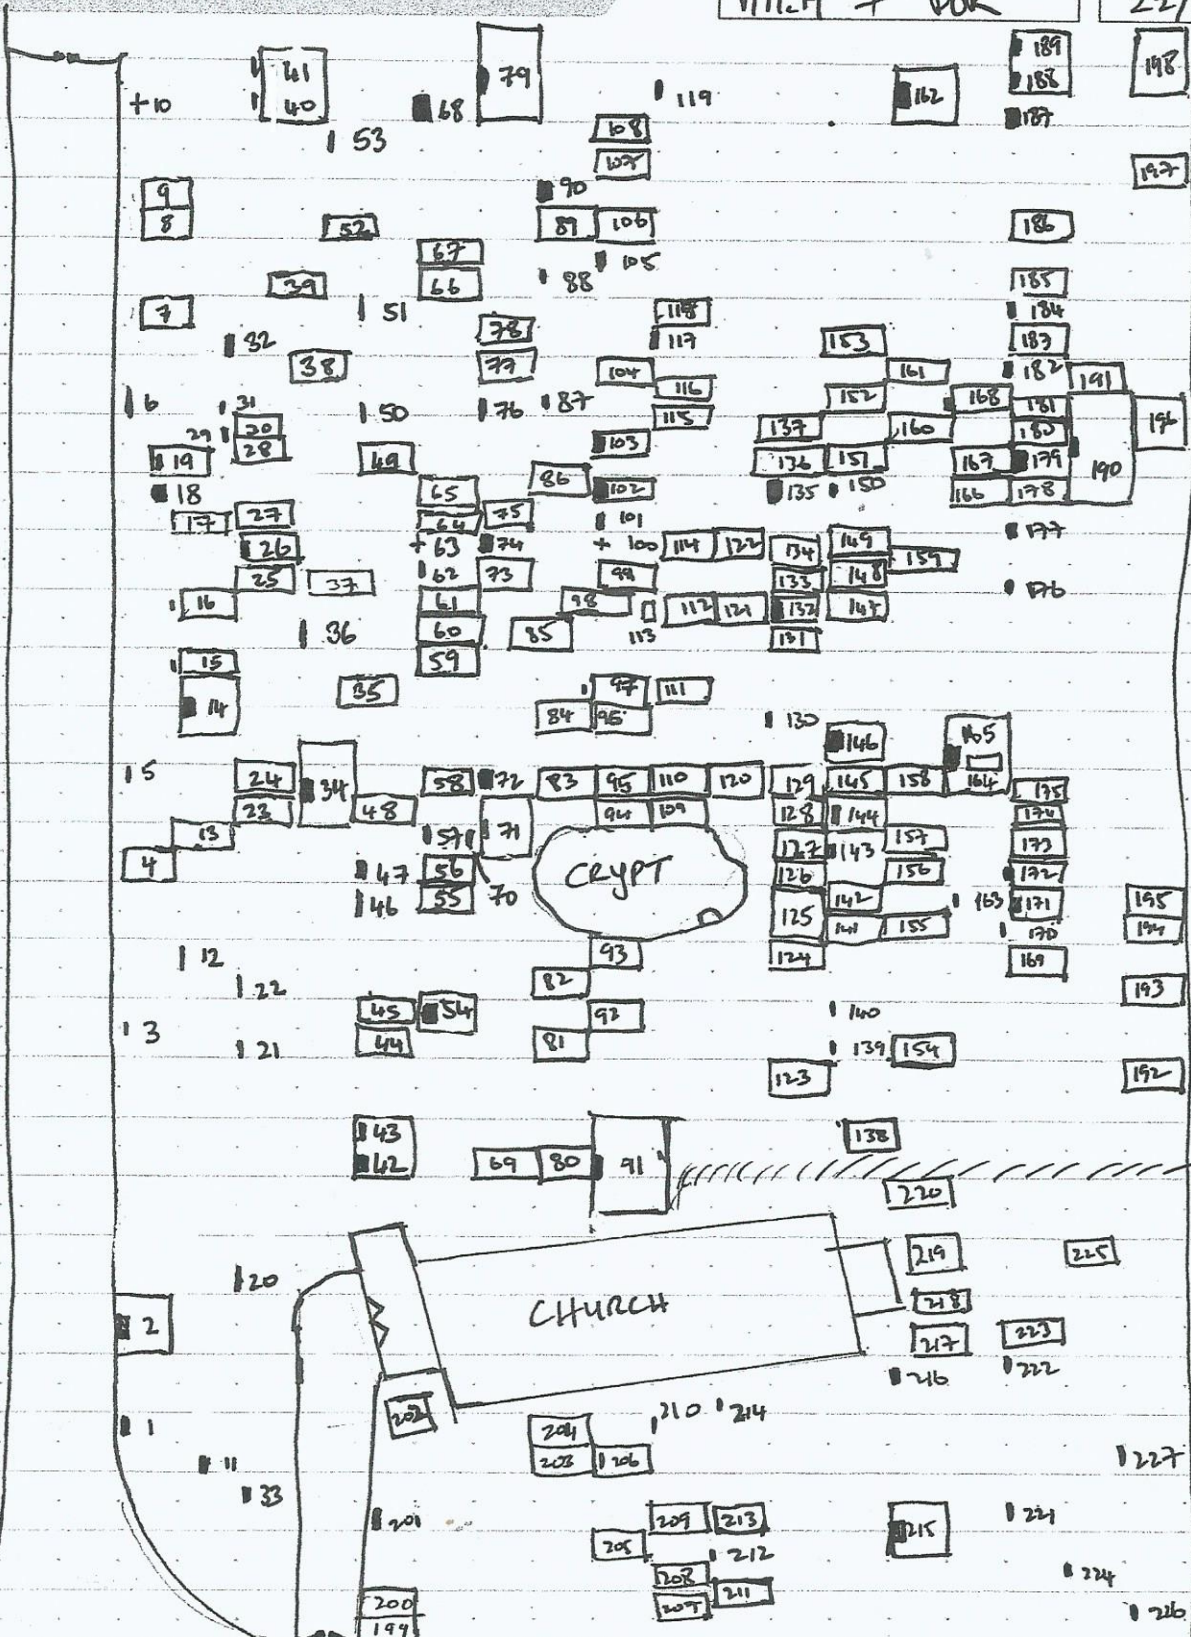 + 221
41 79 189 198
+10 40 68 119 162 188
53 108 187
107 197
9 90
8 52 89 106 186
67 105
39 66 88 185
7 51 118 184
32 78 117 153 183
38 77 104 161 182 191
6 31 50 76 87 116 152 168 181 196
29 30 115 137 160 180
19 28 49 103 136 151 167 179 190
18 65 86 102 135 150 166 178
17 27 64 75 101 177
26 +63 74 +100 114 122 134 149 159
25 37 62 73 99 133 148 176
16 61 98 112 121 132 147
36 60 85 113 131
15 59
14 35 97 111
84 96 130 146 165
5 24 34 58 72 83 95 110 120 129 145 158 164 175
23 48 71 94 109 128 144 174
13 57 127 143 157 173
4 47 56 CRYPT 126 156 172
46 55 70 125 142 163 171 195
12 93 124 141 155 170 194
22 82 169 193
3 45 54 92 140
21 44 81 139 154
123 192
43 138
42 69 80 91
220
20 219 225
2 CHURCH 218
217 223
216 222
1 202 204 210 214
11 203 206 227
33
201 209 213 215 221
205 212
208 224
200 207 211 226
199